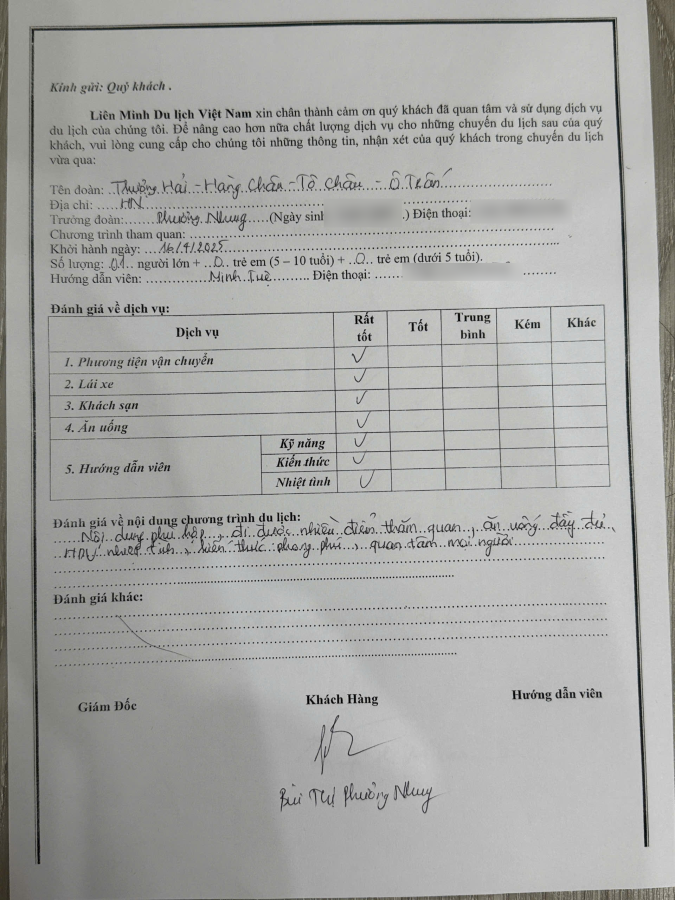 Kính gửi: Quý khách .
Liên Minh Du lịch Việt Nam xin chân thành cảm ơn quý khách đã quan tâm và sử dụng dịch vụ
du lịch của chúng tôi. Để nâng cao hơn nữa chất lượng dịch vụ cho những chuyến du lịch sau của quý
khách, vui lòng cung cấp cho chúng tôi những thông tin, nhận xét của quý khách trong chuyến du lịch
vừa qua:
Tên đoàn: Thượng Hải - Hàng Châu - Tô Châu - Ô Trấn
Địa chỉ: HN
Trưởng đoàn: Phương Nhung (Ngày sinh .) Điện thoại:
Chương trình tham quan:
Khởi hành ngày: 16/4/2025
Số lượng: 01 người lớn + 0 trẻ em (5 – 10 tuổi) + 0 trẻ em (dưới 5 tuổi).
Hướng dẫn viên: Minh Tuệ Điện thoại:
Đánh giá về dịch vụ:
Dịch vụ Rất tốt Tốt Trung bình Kém Khác
1. Phương tiện vận chuyển ✓
2. Lái xe ✓
3. Khách sạn ✓
4. Ăn uống ✓
5. Hướng dẫn viên Kỹ năng ✓
Kiến thức ✓
Nhiệt tình ✓
Đánh giá về nội dung chương trình du lịch:
Nội dung phù hợp, đi được nhiều điểm thăm quan, ăn uống đầy đủ,
HDV nhiệt tình, kiến thức phong phú, quan tâm mọi người
Đánh giá khác:
Giám Đốc Khách Hàng Hướng dẫn viên
Bùi Thị Phương Nhung